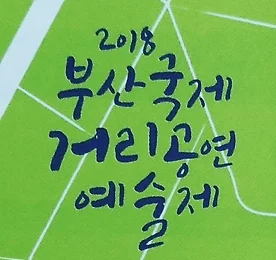 2018
부산국제
거리공연
예술제